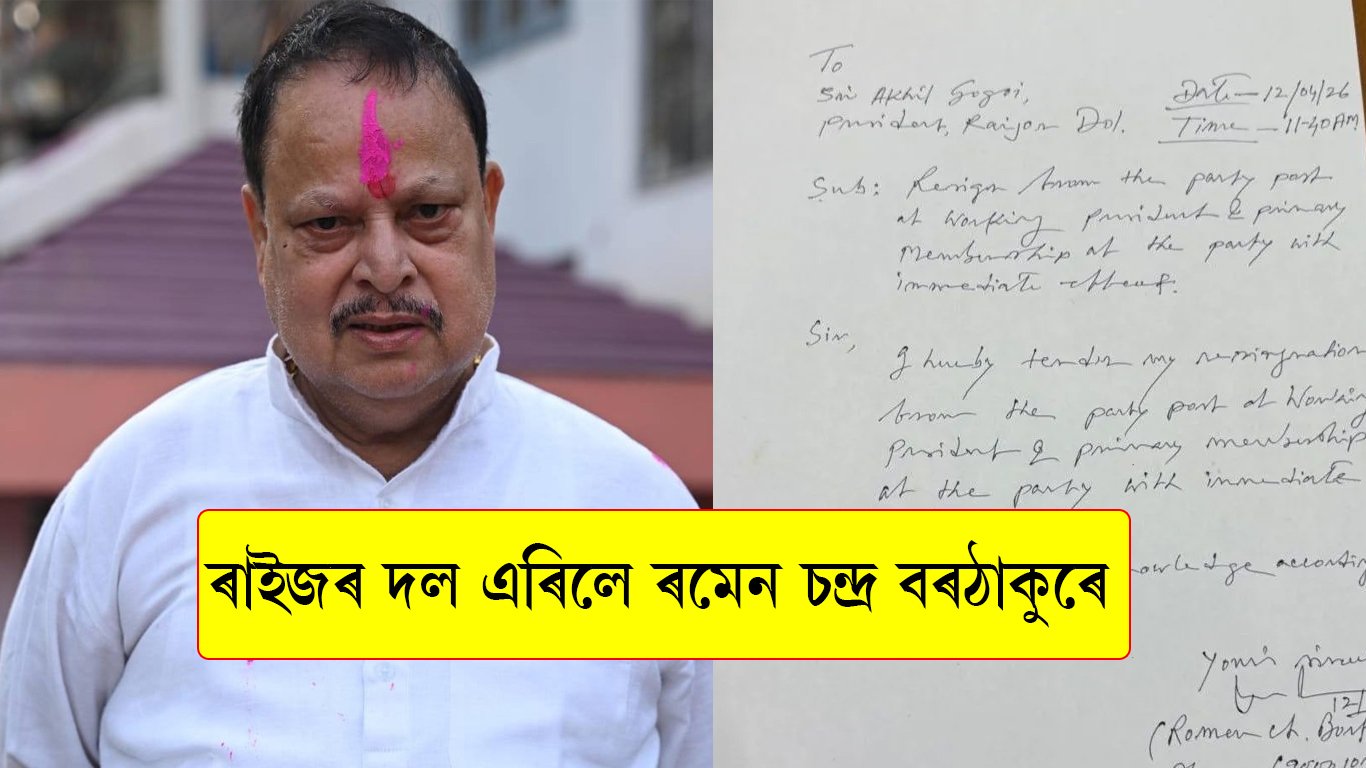 To
Sri Akhil Gogoi,
President, Raijor Dol.
Date - 12/04/26
Time - 11-40 AM
Sub: Resign from the party post
of working president & primary
membership of the party with
immediate effect.
Sir,
I hereby tender my resignation
from the party post of Working
President & primary membership
of the party with immediate
according
Yours
(Romen Ch.
ৰাইজৰ দল এৰিলে ৰমেন চন্দ্ৰ বৰঠাকুৰে